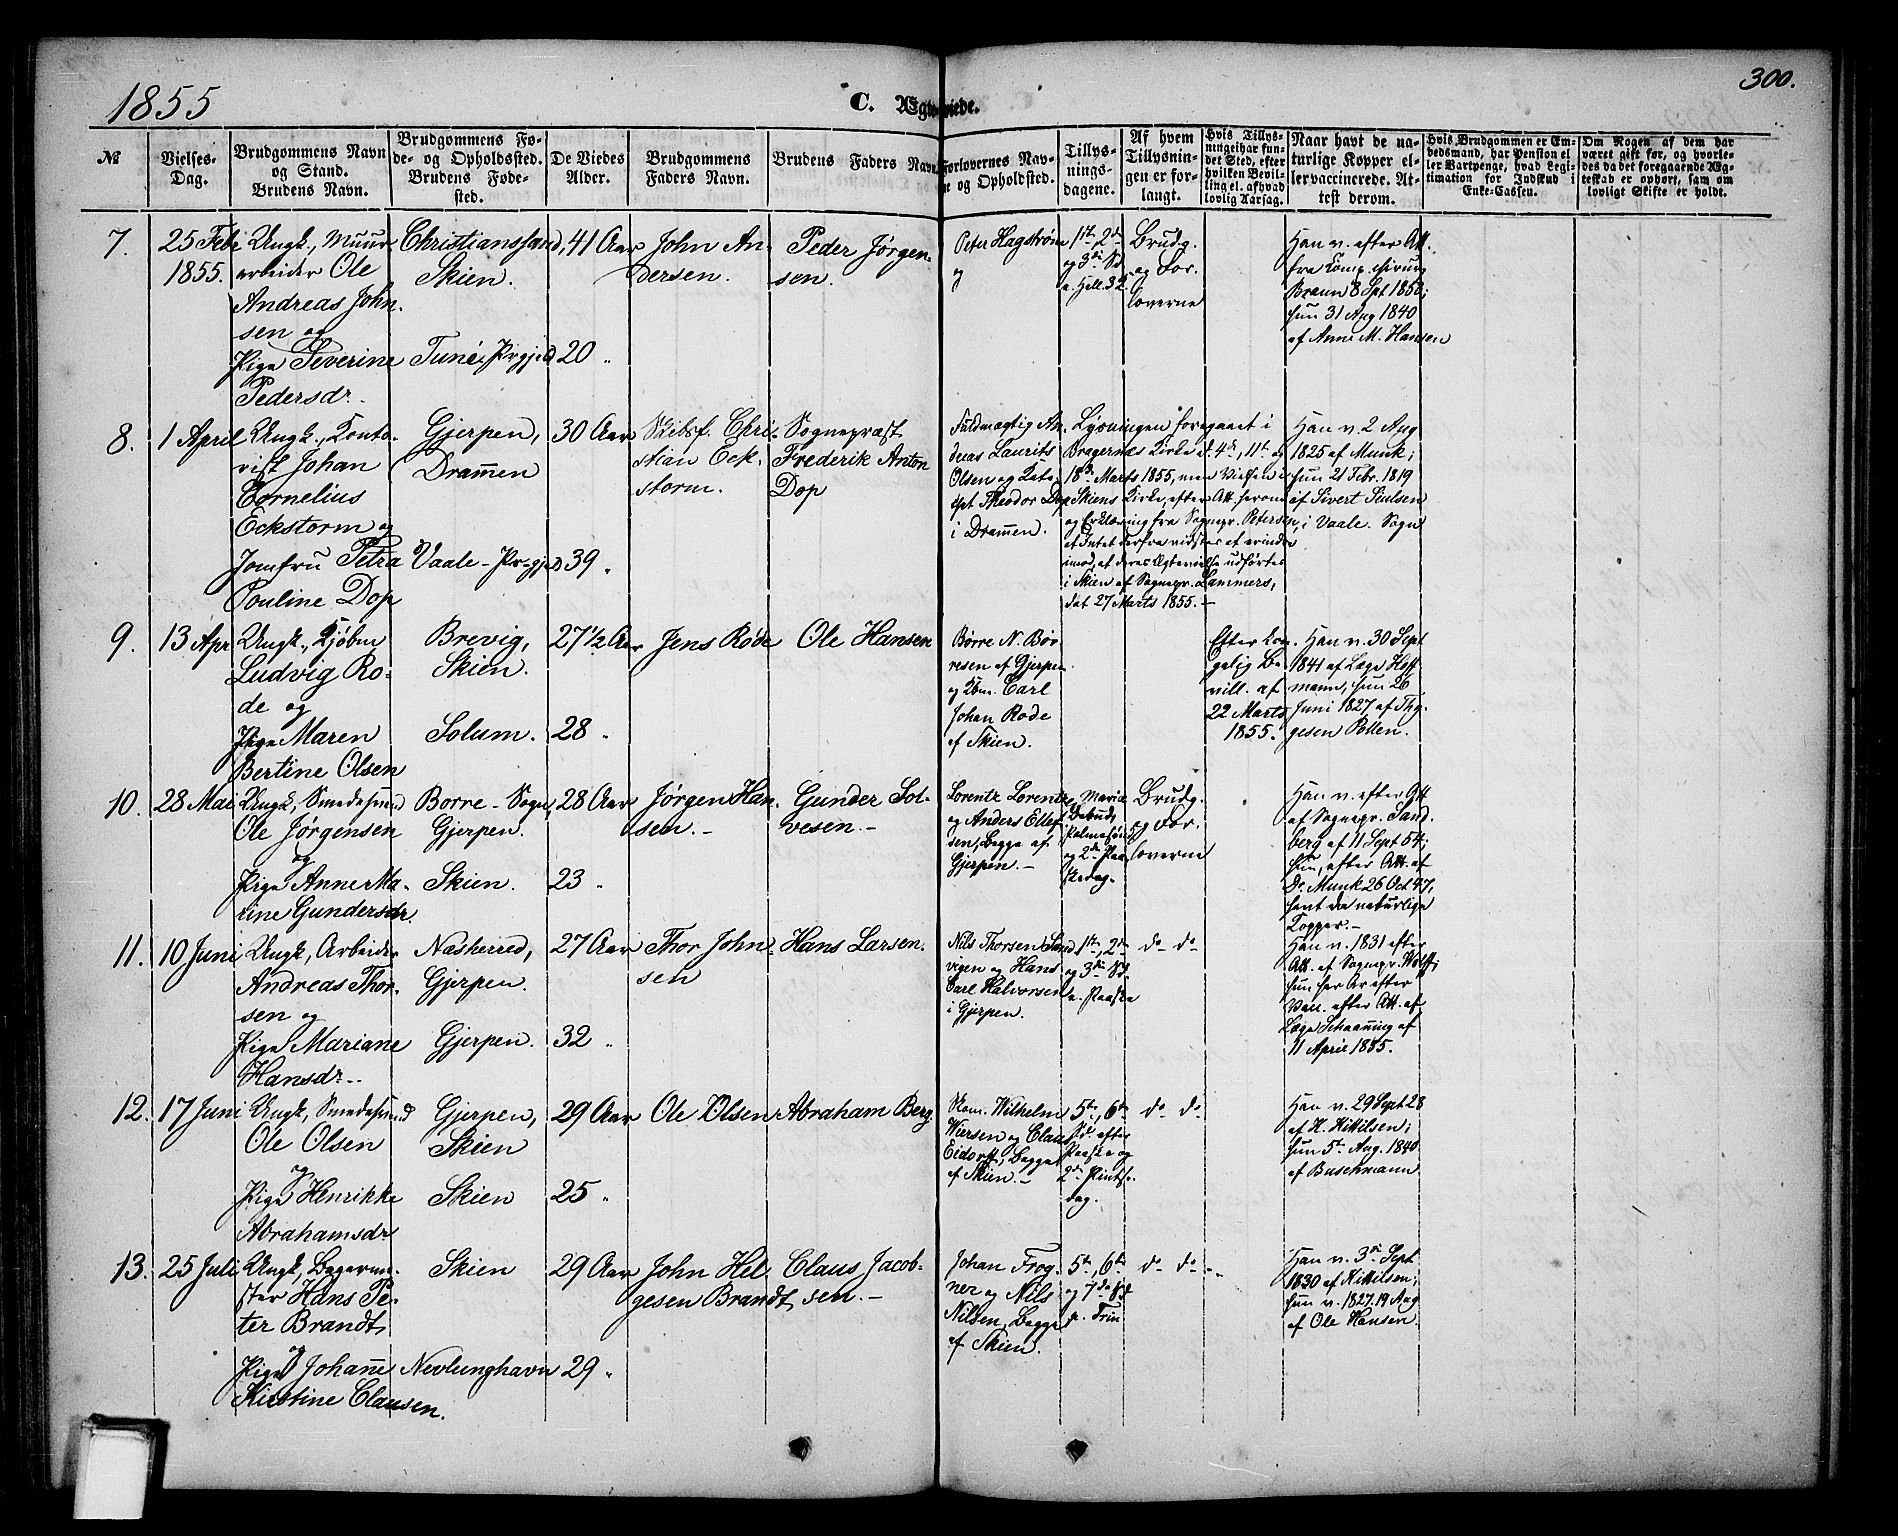 1855
C. Ægteviede.
300.
№
Vielses-
Dag.
Brudgommens Navn
og Stand.
Brudens Navn.
Brudgommens Fø-
de- og Opholdssted.
Brudens Føde-
sted.
De Viedes
Alder.
Brudgommens
Faders Navn.
Brudens Faders Navn.
Forlovernes Nav-
ne og Opholdssted.
Tillys-
nings-
dagene.
Af hvem
Tillysnin-
gen er for-
langt.
Hvis Tillys-
ning ei har fun-
det Sted, efter
hvilken Bevil-
ling el. af hvad
lovlig Aarsag.
Naar havt de na-
turlige Kopper el-
ler vaccinerede. At-
test derom.
Hvis Brudgommen er Em-
bedsmand, har Pension el-
ler Vartpenge, hvad Legi-
timation for Indskud i
Enke-Cassen.
Om Nogen af dem har
været gift før, og hvorle-
des da det foregaaende Æg-
teskab er ophørt, sam om
lovligt Skifte er holdt.
7.
25 Feb
1855.
Ungk., Muur
arbeider Ole
Andreas John-
sen og
Pige Severine
Pedersdr.
Christianssand,
Skien.
Tune Prgjeld
41 Aar
20 "
John An-
dersen.
Peder Jørgen-
sen.
Peter Hagstrøm
og
1ste 2de
og 3die Sd.
e. Hell. 3 K.
Brudg.
og For-
loverne
Han v. efter Att.
fra Komp. chirurg
Braun 8 Sept 1853;
hun 31 Aug 1840
af Anne M. Hansen
8.
1 April
Ungk., Konto-
rist Johan
Cornelius
Eckstorm og
Jomfru Petra
Pouline Dop
Gjerpen,
Dramen
Vaale-Pr-gjeld
30 Aar
39 "
Skibsf. Chri-
stian Eck-
storm.
Sognepræst
Frederik Anton
Dop
Fuldmægtig An-
dreas Laurits
Olsen og Kate-
chet Theodor Dop
i Dramen.
Lysningen foregaaet i
Bragernæs Kirke d. 4de, 11te og
18de Marts 1855, men Vielsen i
Skiens Kirke, efter Att. herom
og Erklæring fra Sognepr. Petersen,
at Intet derfra vidstes at erindre
imod, at deres Ægtevielse udførtes
i Skien af Sognepr. Lammers,
dat. 27 Marts 1855.-
Han v. 2 Aug
1825 af Munk;
hun 21 Febr. 1819
af Sivert Siulsen
i Vaale. Sogn
9.
13 Apr
Ungk., Kjøbm
Ludvig Ro-
de og
Pige Maren
Bertine Olsen
Brevig,
Skien.
Solum.
27 1/2 Aar
28 "
Jens Rode
Ole Hansen
Børre N. Bør-
resen af Gjerpen
og Kbm. Carl
Johan Rode
af Skien.
Efter Kon-
gelig Be-
vill. af
22 Marts
1855.
Han v. 30 Sept
1841 af Læge Hoff-
mann, hun 26
Juni 1827 af Thy-
gesen Bollen.
10.
28 Mai
Ungk, Smedesvend
Ole Jørgensen
og
Pige Anne Ma-
rine Gundersdr.
Borre-Sogn,
Gjerpen.
Skien.
28 Aar
23 "
Jørgen Han-
sen.-
Gunder Sol-
vesen.-
Lorentz Lorentz
og Anders Ellef-
sen, begge af
Gjerpen.-
Mariæ
Bebud,
Palmesøn
og 2de Paa-
skedag.
Brudg.
og For-
loverne
Han v. efter Att
af Sognepr. Sand-
berg af 11 Sept 54;
hun, efter Att. af
Dr. Munk 26 Oct 47,
havt de naturlige
Kopper.-
11.
10 Juni
Ungk, Arbeider
Andreas Thor-
sen og
Pige Mariane
Hansdr.-
Næsherred,
Gjerpen.
Gjerpen.
27 Aar
32 "
Thor John-
sen
Hans Larsen.
Nils Thorsen Sand-
vigen og Hans
Carl Halvorsen
i Gjerpen.
1ste, 2de
og 3die Sd.
e. Paaske
do do
Han v. 1831 efter
Att. af Sognepr. Wolff;
hun har Ar efter
Vac. efter Att. af
Læge Schaanning af
11 April 1855.
12.
17 Juni
Ungk, Smedesvend
Ole Olsen
og
Pige Henrikke
Abrahamsdr
Gjerpen,
Skien
Skien
29 Aar
25 "
Ole Olsen
Abraham Berg
Skom. Wilhelm
Wiersen og Claus
Eidorff, begge
af Skien.-
5te, 6te
Sd. efter
Paaske og
2de Pintse-
dag.
do do
Han v. 29 Sept 28
af H. Kittilsen;
hun 5te Aug. 1840
af Buschmann
13.
25 Juli
Ungk, Bagerme-
ster Hans Pe-
ter Brandt
og
Pige Johanne
Kirstine Clausen.
Skien
Nevlunghavn
29 Aar
29 "
John Hel-
gesen Brandt
Claus Jacob-
sen.-
Johan Frog-
ner og Nils
Nilsen, begge
af Skien.
5te, 6te
og 7de Sd
e. Trin
do do
Han v. 3die Sept
1830 af Kittilsen;
hun v. 1827 19 Aug
af Ole Hansen.